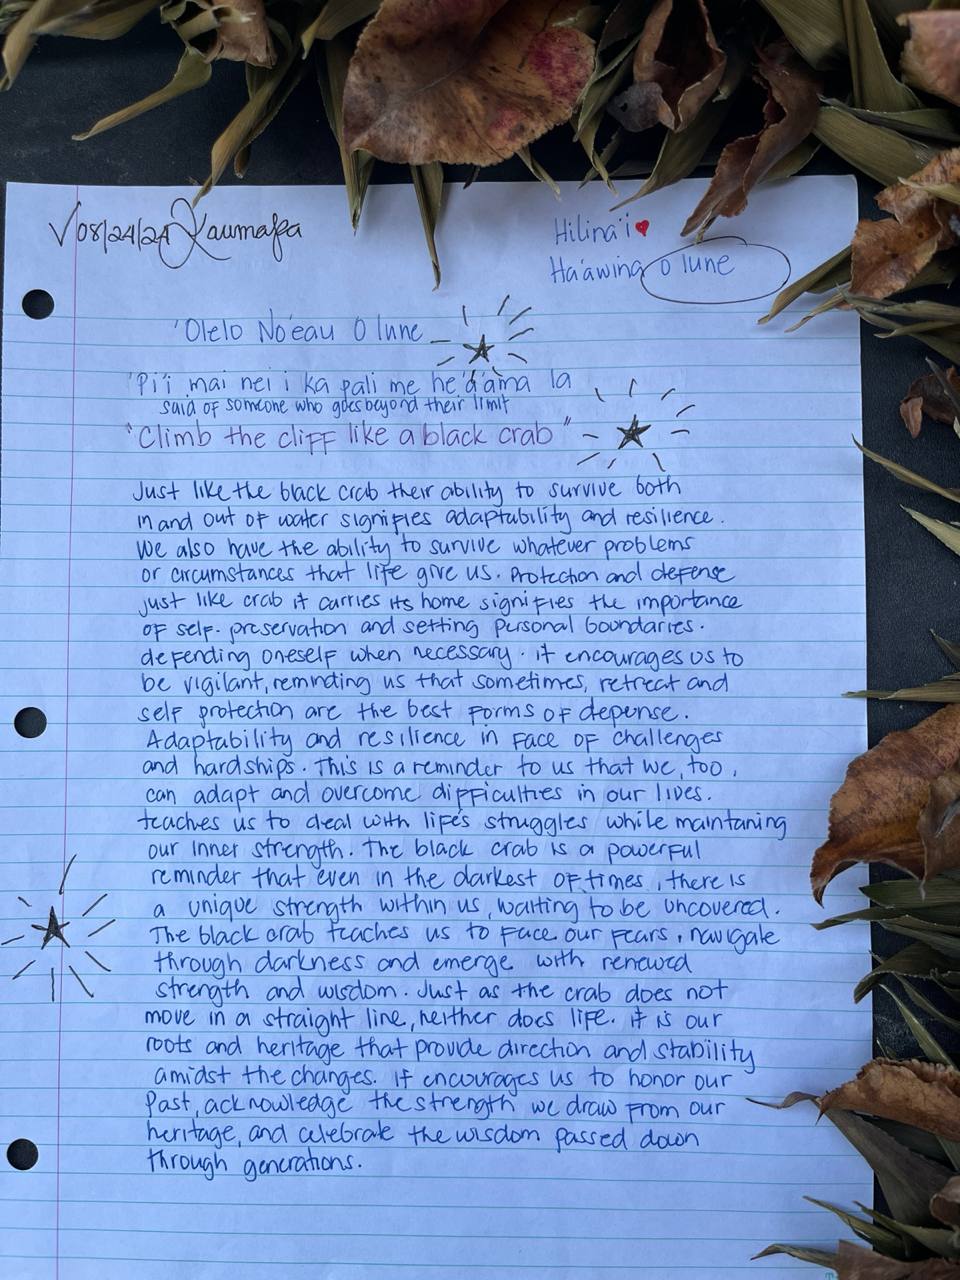 √08/24/24 Kaumaka
Hilina'i
Ha'awina O Iune
'Olelo No'eau O Iune
'Pi'i mai nei i ka pali me he 'a'ama la
said of someone who goes beyond their limit
"Climb the cliff like a black crab"
Just like the black crab their ability to survive both
in and out of water signifies adaptability and resilience.
We also have the ability to survive whatever problems
or circumstances that life give us. Protection and defense
just like crab it carries its home signifies the importance
of self-preservation and setting personal boundaries.
defending oneself when necessary. it encourages us to
be vigilant, reminding us that sometimes, retreat and
self protection are the best forms of depense.
Adaptability and resilience in face of challenges
and hardships. This is a reminder to us that we, too,
can adapt and overcome difficulties in our lives.
teaches us to deal with life's struggles while maintaning
our inner strength. The black crab is a powerful
reminder that even in the darkest of times, there is
a unique strength within us, waiting to be uncovered.
The black crab teaches us to face our fears, navigate
through darkness and emerge with renewed
strength and wisdom. Just as the crab does not
move in a straight line, neither does life. it is our
roots and heritage that provide direction and stability
amidst the changes. It encourages us to honor our
past, acknowledge the strength we draw from our
heritage, and celebrate the wisdom passed down
through generations.